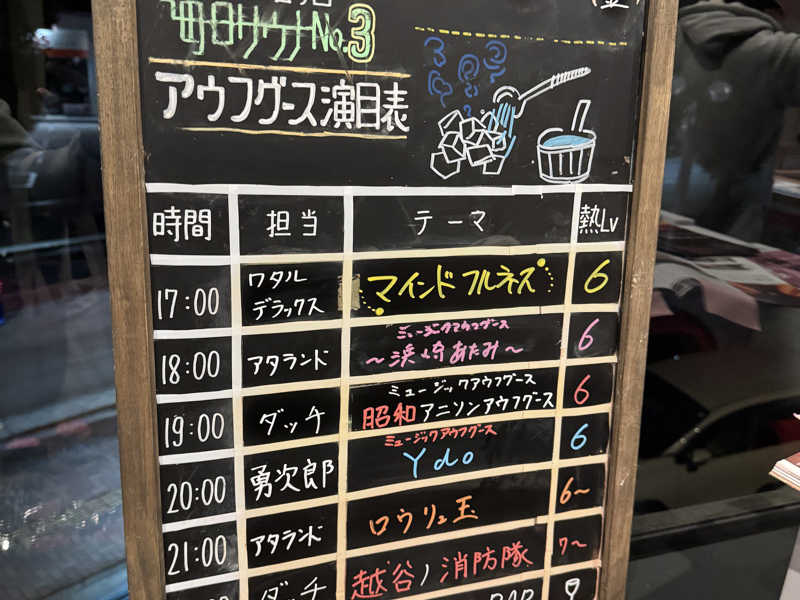 (金)
毎日サウナNo.3
アウフグース演目表
時間 担当 テーマ 熱Lv
17:00 ワタル デラックス マインドフルネス 6
18:00 アタランド ミュージックアウフグース ～浜崎あたみ～ 6
19:00 ダッチ ミュージックアウフグース 昭和アニソンアウフグース 6
20:00 勇次郎 ミュージックアウフグース Ydo 6
21:00 アタランド ロウリュ玉 6～
ダッチ 越谷ノ消防隊 7～